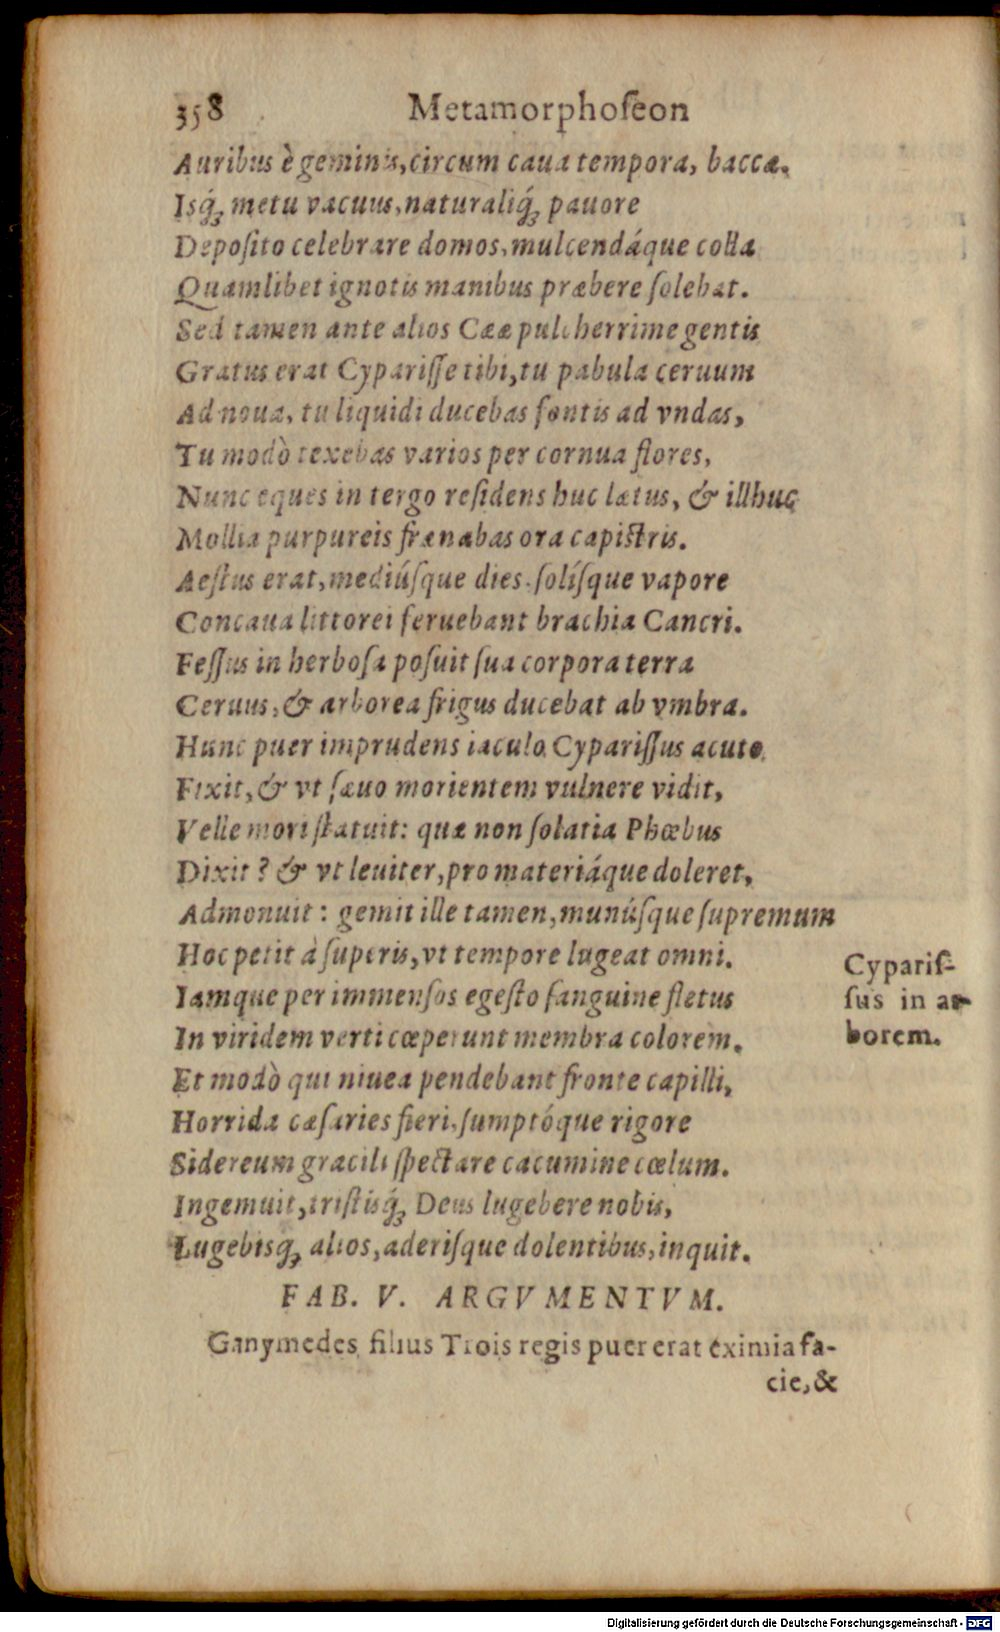 358 Metamorphoſeon
Auribus è geminis, circum caua tempora, baccæ.
Isq́ꝫ metu vacuus, naturaliq́ꝫ pauore
Depoſito celebrare domos, mulcendáque colla
Quamlibet ignotis manibus præbere ſolebat.
Sed tamen ante alios Cææ pulcherrime gentis
Gratus erat Cypariſſe tibi, tu pabula ceruum
Ad noua, tu liquidi ducebas fontis ad vndas,
Tu modò texebas varios per cornua flores,
Nunc eques in tergo reſidens huc lætus, & illhuc
Mollia purpureis frænabas ora capiſtris.
Aeſtus erat, mediúſque dies. ſolíſque vapore
Concaua littorei feruebant brachia Cancri.
Feſſus in herboſa poſuit ſua corpora terra
Ceruus, & arborea frigus ducebat ab vmbra.
Hunc puer imprudens iaculo Cypariſſus acuto
Fixit, & vt ſæuo morientem vulnere vidit,
Velle mori ſtatuit: quæ non ſolatia Phœbus
Dixit? & vt leuiter, pro materiáque doleret,
Admonuit: gemit ille tamen, munúſque ſupremum
Hoc petit à ſuperis, vt tempore lugeat omni.
Iamque per immenſos egeſto ſanguine fletus
In viridem verti cœperunt membra colorem.
Et modò qui niuea pendebant fronte capilli,
Horrida cæſaries fieri, ſumptóque rigore
Sidereum gracili ſpectare cacumine cœlum.
Ingemuit, triſtisq́ꝫ Deus lugebere nobis,
Lugebisqꝫ alios, aderiſque dolentibus, inquit.
Cypariſ-
ſus in ar-
borem.
FAB. V. ARGVMENTVM.
Ganymedes filius Trois regis puer erat eximia fa-
cie, &
Digitalisierung gefördert durch die Deutsche Forschungsgemeinschaft - DFG